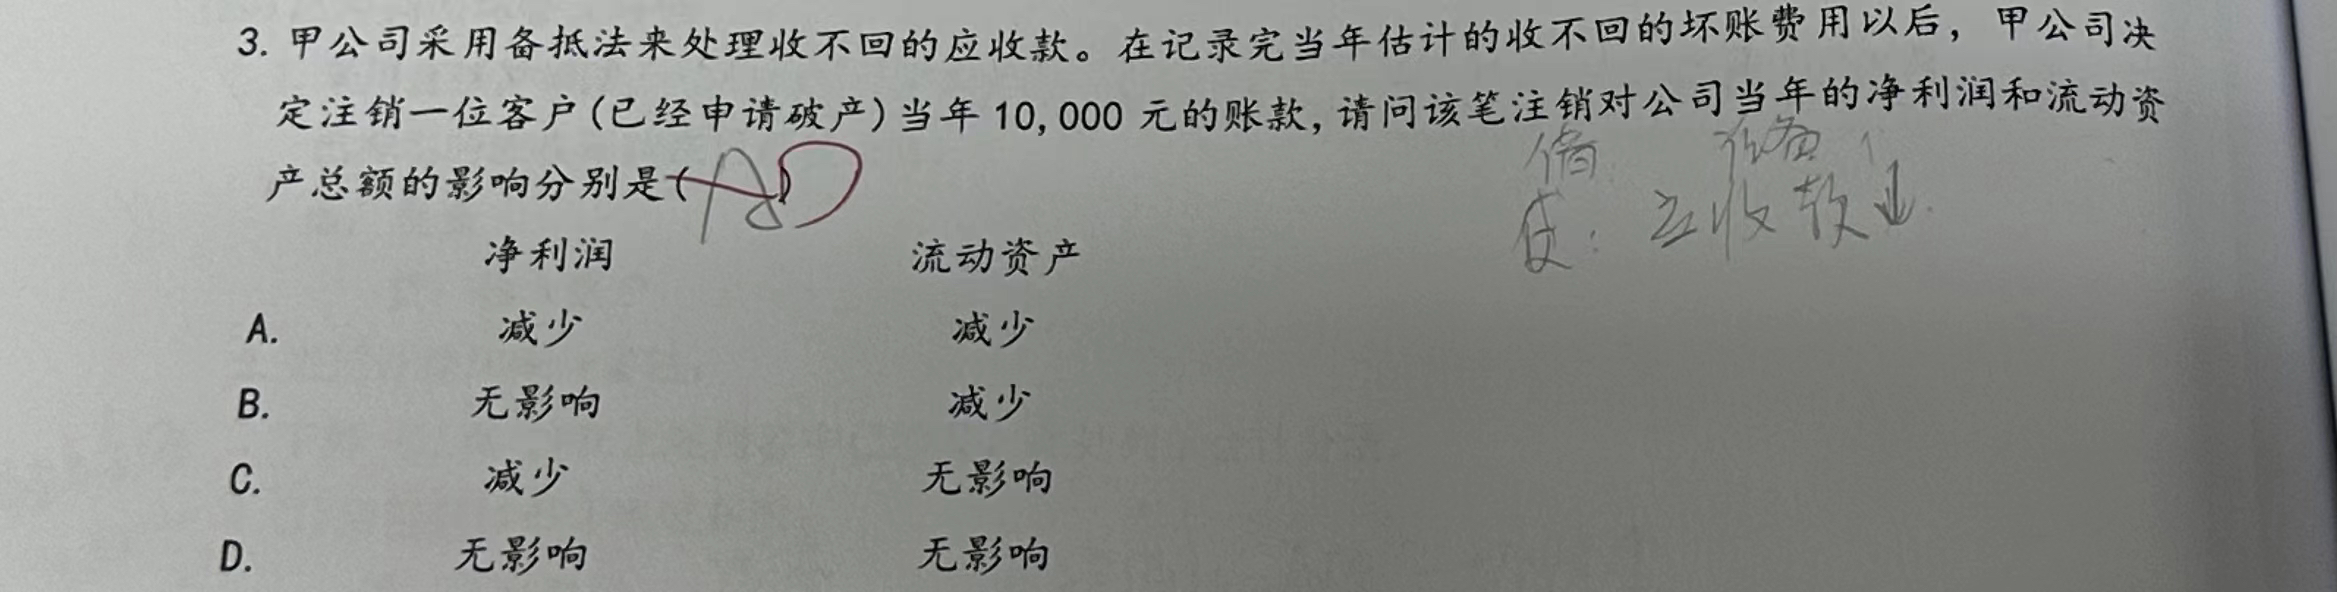 3. 甲公司采用备抵法来处理收不回的应收款。在记录完当年估计的收不回的坏账费用以后，甲公司决
定注销一位客户(已经申请破产)当年 10,000 元的账款,请问该笔注销对公司当年的净利润和流动资
产总额的影响分别是( A D )
借: 准备
贷: 应收款↓
净利润 流动资产
A. 减少 减少
B. 无影响 减少
C. 减少 无影响
D. 无影响 无影响